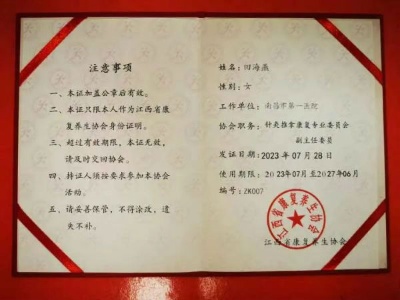 注意事项
一、本证加盖公章后有效。
二、本证只限本人作为江西省康
复养生协会身份证明。
三、超过有效期限,本证无效,
请及时交回协会。
四、持证人须按要求参加本协会
活动。
五、请妥善保管,不得涂改,遗
失不补。
姓名:田海燕
性别:女
工作单位:南昌市第一医院
协会职务:针灸推拿康复专业委员会
副主任委员
发证日期:2023年07月28日
使用期限:2023年07月至2027年06月
编号:ZK007
江西省康复养生协会
江西省康复养生协会